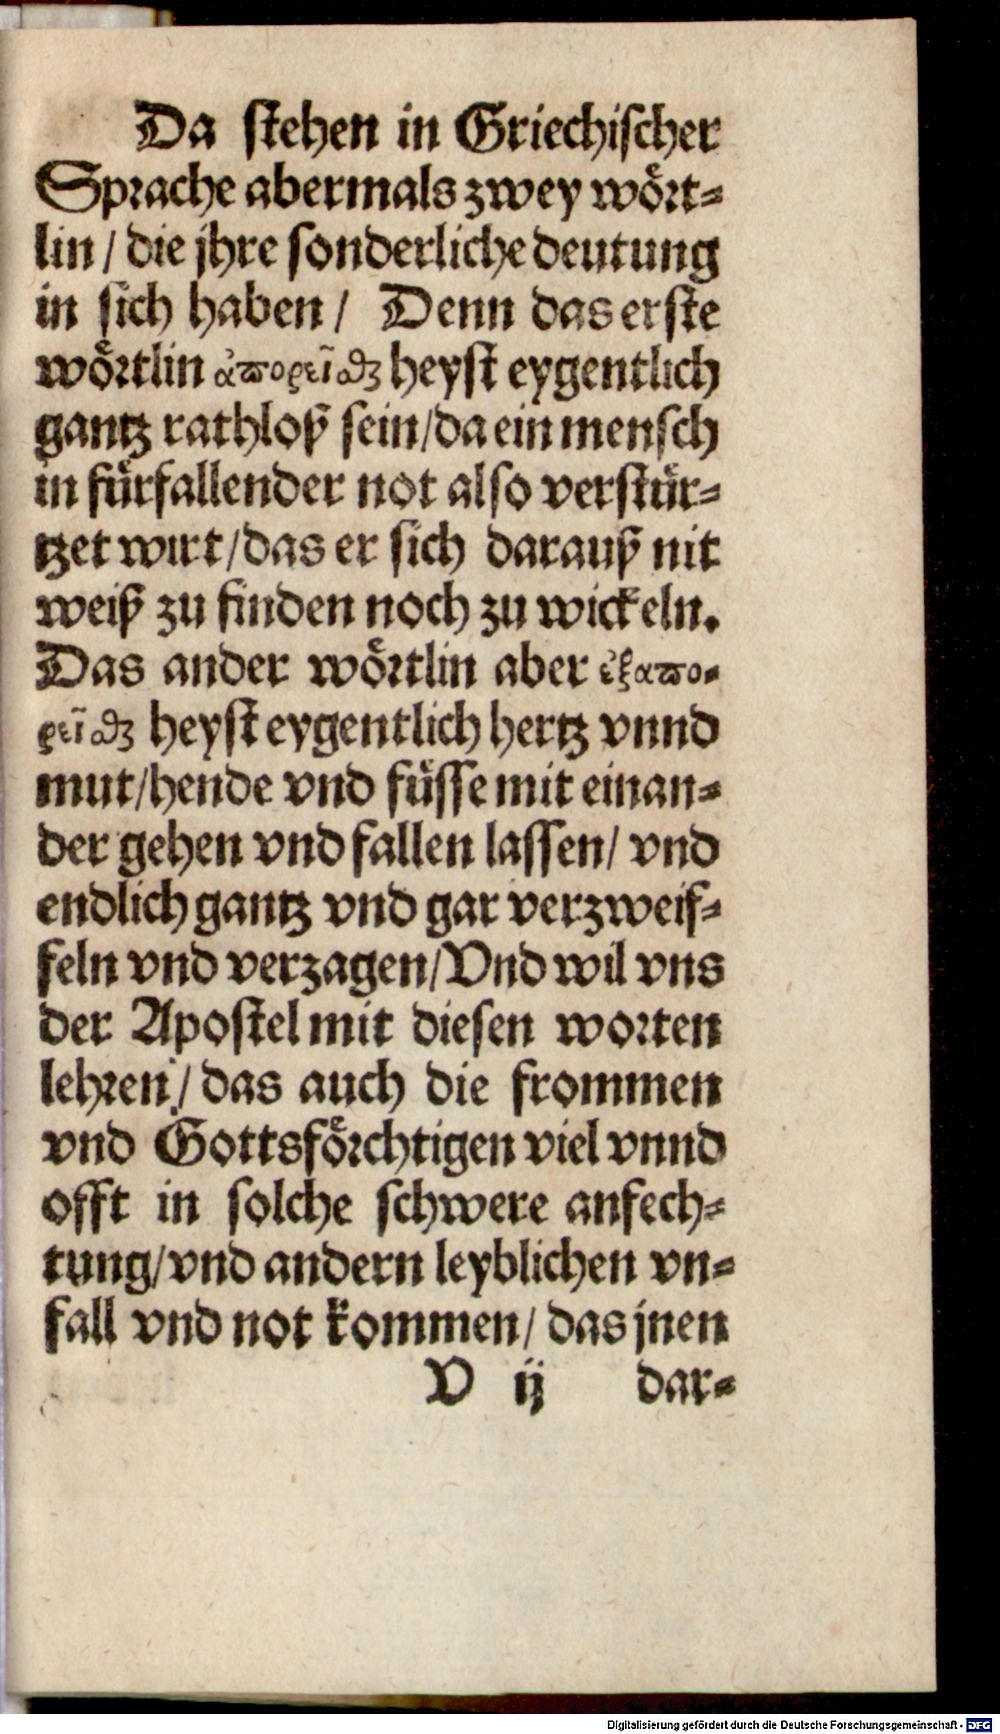 Da stehen in Griechischer
Sprache abermals zwey wört-
lin / die jhre sonderliche deutung
in sich haben / Denn das erste
wörtlin ἀπορεῖσθαι heyst eygentlich
gantz rathloß sein/da ein mensch
in fürfallender not also verstür-
tzet wirt/das er sich darauß nit
weiß zu finden noch zu wickeln.
Das ander wörtlin aber ἐξαπο-
ρεῖσθαι heyst eygentlich hertz vnnd
mut/hende vnd füsse mit einan-
der gehen vnd fallen lassen/ vnd
endlich gantz vnd gar verzweif-
feln vnd verzagen/Vnd wil vns
der Apostel mit diesen worten
lehren / das auch die frommen
vnd Gottsförchtigen viel vnnd
offt in solche schwere anfech-
tung/vnd andern leyblichen vn-
fall vnd not kommen/ das jnen
V ij dar-
Digitalisierung gefördert durch die Deutsche Forschungsgemeinschaft - DFG